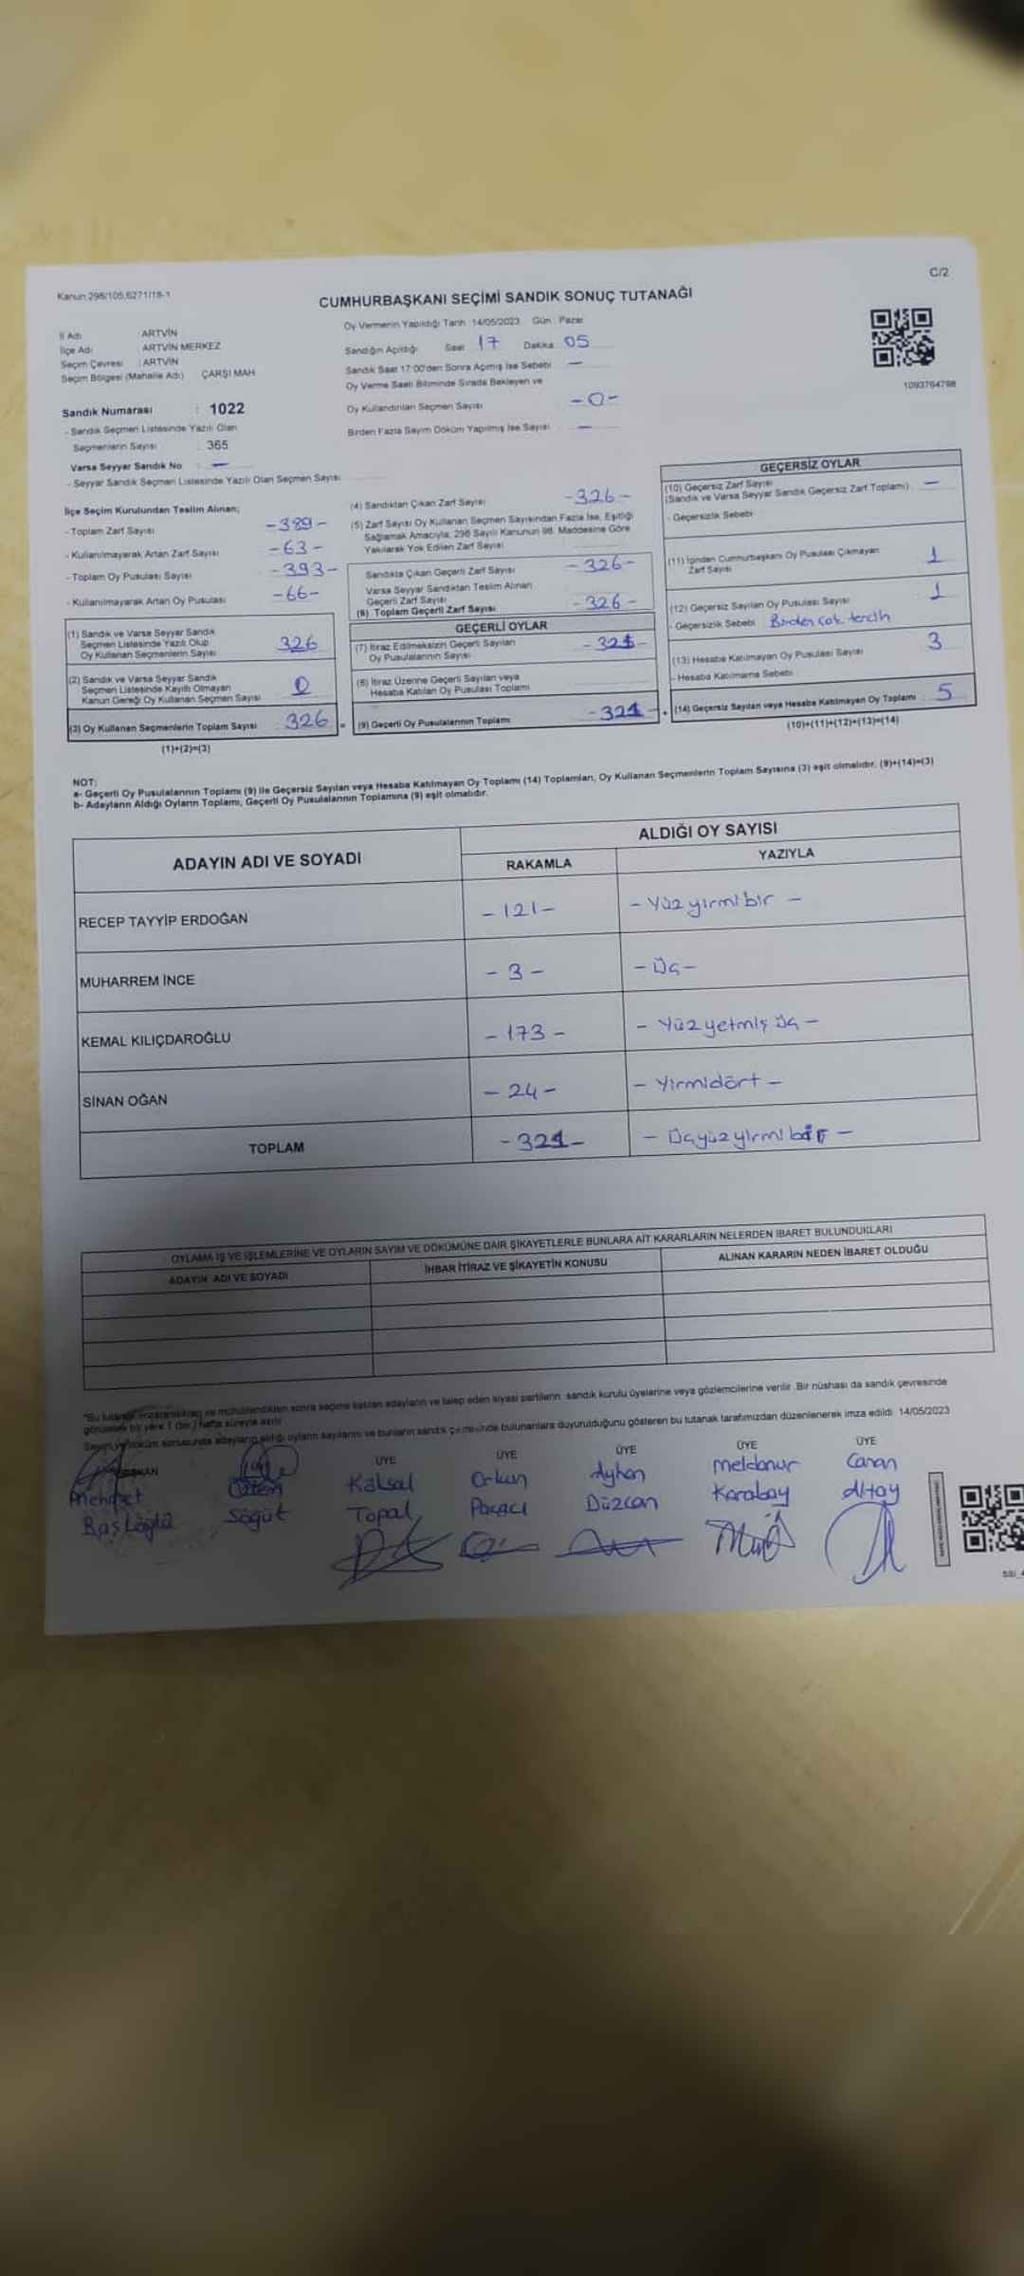 C/2
Kanun:298/105,6271/18-1
CUMHURBAŞKANI SEÇİMİ SANDIK SONUÇ TUTANAĞI
İl Adı : ARTVİN
İlçe Adı : ARTVİN MERKEZ
Seçim Çevresi : ARTVİN
Seçim Bölgesi (Mahalle Adı) : ÇARŞI MAH
Oy Vermenin Yapıldığı Tarih : 14/05/2023 Gün : Pazar
Sandığın Açıldığı Saat 17 Dakika 05
Sandık Saat 17:00'den Sonra Açımış İse Sebebi —
Oy Verme Saati Bitiminde Sırada Bekleyen ve
Oy Kullandırılan Seçmen Sayısı -0-
Birden Fazla Sayım Döküm Yapılmış İse Sayısı —
1093764798
Sandık Numarası : 1022
- Sandık Seçmen Listesinde Yazılı Olan
Seçmenlerin Sayısı : 365
Varsa Seyyar Sandık No : —
- Seyyar Sandık Seçmen Listesinde Yazılı Olan Seçmen Sayısı
İlçe Seçim Kurulundan Teslim Alınan;
- Toplam Zarf Sayısı -389-
- Kullanılmayarak Artan Zarf Sayısı -63-
- Toplam Oy Pusulası Sayısı -393-
- Kullanılmayarak Artan Oy Pusulası -66-
(1) Sandık ve Varsa Seyyar Sandık
Seçmen Listesinde Yazılı Olup
Oy Kullanan Seçmenlerin Sayısı 326
(2) Sandık ve Varsa Seyyar Sandık
Seçmen Listesinde Kayıtlı Olmayan
Kanun Gereği Oy Kullanan Seçmen Sayısı 0
(3) Oy Kullanan Seçmenlerin Toplam Sayısı 326
(1)+(2)=(3)
(4) Sandıktan Çıkan Zarf Sayısı -326-
(5) Zarf Sayısı Oy Kullanan Seçmen Sayısından Fazla İse, Eşitliği
Sağlamak Amacıyla, 298 Sayılı Kanunun 98. Maddesine Göre
Yakılarak Yok Edilen Zarf Sayısı
Sandıkta Çıkan Geçerli Zarf Sayısı -326-
Varsa Seyyar Sandıktan Teslim Alınan
Geçerli Zarf Sayısı
(6) Toplam Geçerli Zarf Sayısı -326-
GEÇERLİ OYLAR
(7) İtiraz Edilmeksizin Geçerli Sayılan
Oy Pusulalarının Sayısı -321-
(8) İtiraz Üzerine Geçerli Sayılan veya
Hesaba Katılan Oy Pusulası Toplamı
= (9) Geçerli Oy Pusulalarının Toplamı -321-
GEÇERSİZ OYLAR
(10) Geçersiz Zarf Sayısı
(Sandık ve Varsa Seyyar Sandık Geçersiz Zarf Toplamı) —
- Geçersizlik Sebebi
(11) İçinden Cumhurbaşkanı Oy Pusulası Çıkmayan
Zarf Sayısı 1
(12) Geçersiz Sayılan Oy Pusulası Sayısı 1
- Geçersizlik Sebebi Birden çok tercih
(13) Hesaba Katılmayan Oy Pusulası Sayısı 3
- Hesaba Katılmama Sebebi
+ (14) Geçersiz Sayılan veya Hesaba Katılmayan Oy Toplamı 5
(10)+(11)+(12)+(13)=(14)
NOT:
a- Geçerli Oy Pusulalarının Toplamı (9) ile Geçersiz Sayılan veya Hesaba Katılmayan Oy Toplamı (14) Toplamları, Oy Kullanan Seçmenlerin Toplam Sayısına (3) eşit olmalıdır. (9)+(14)=(3)
b- Adayların Aldığı Oyların Toplamı, Geçerli Oy Pusulalarının Toplamına (9) eşit olmalıdır.
ADAYIN ADI VE SOYADI
ALDIĞI OY SAYISI
RAKAMLA YAZIYLA
RECEP TAYYİP ERDOĞAN -121- - Yüzyirmibir -
MUHARREM İNCE -3- -Üç-
KEMAL KILIÇDAROĞLU -173- - Yüzyetmiş üç -
SİNAN OĞAN -24- - Yirmidört -
TOPLAM -321- - Üçyüzyirmibir -
OYLAMA İŞ VE İŞLEMLERİNE VE OYLARIN SAYIM VE DÖKÜMÜNE DAİR ŞİKAYETLERLE BUNLARA AİT KARARLARIN NELERDEN İBARET BULUNDUKLARI
ADAYIN ADI VE SOYADI İHBAR İTİRAZ VE ŞİKAYETİN KONUSU ALINAN KARARIN NEDEN İBARET OLDUĞU
sonra seçime katılan adayların ve talep eden siyasi partilerin, sandık kurulu üyelerine veya gözlemcilerine verilir. Bir nüshası da sandık çevresinde
bulunanlara duyurulduğunu gösteren bu tutanak tarafımızdan düzenlenerek imza edildi. 14/05/2023
ÜYE ÜYE ÜYE ÜYE ÜYE
Mehmet Köksal Orkun Ayhan Meldanur Canan
Söğüt Topal Düzcan Karabay Altay